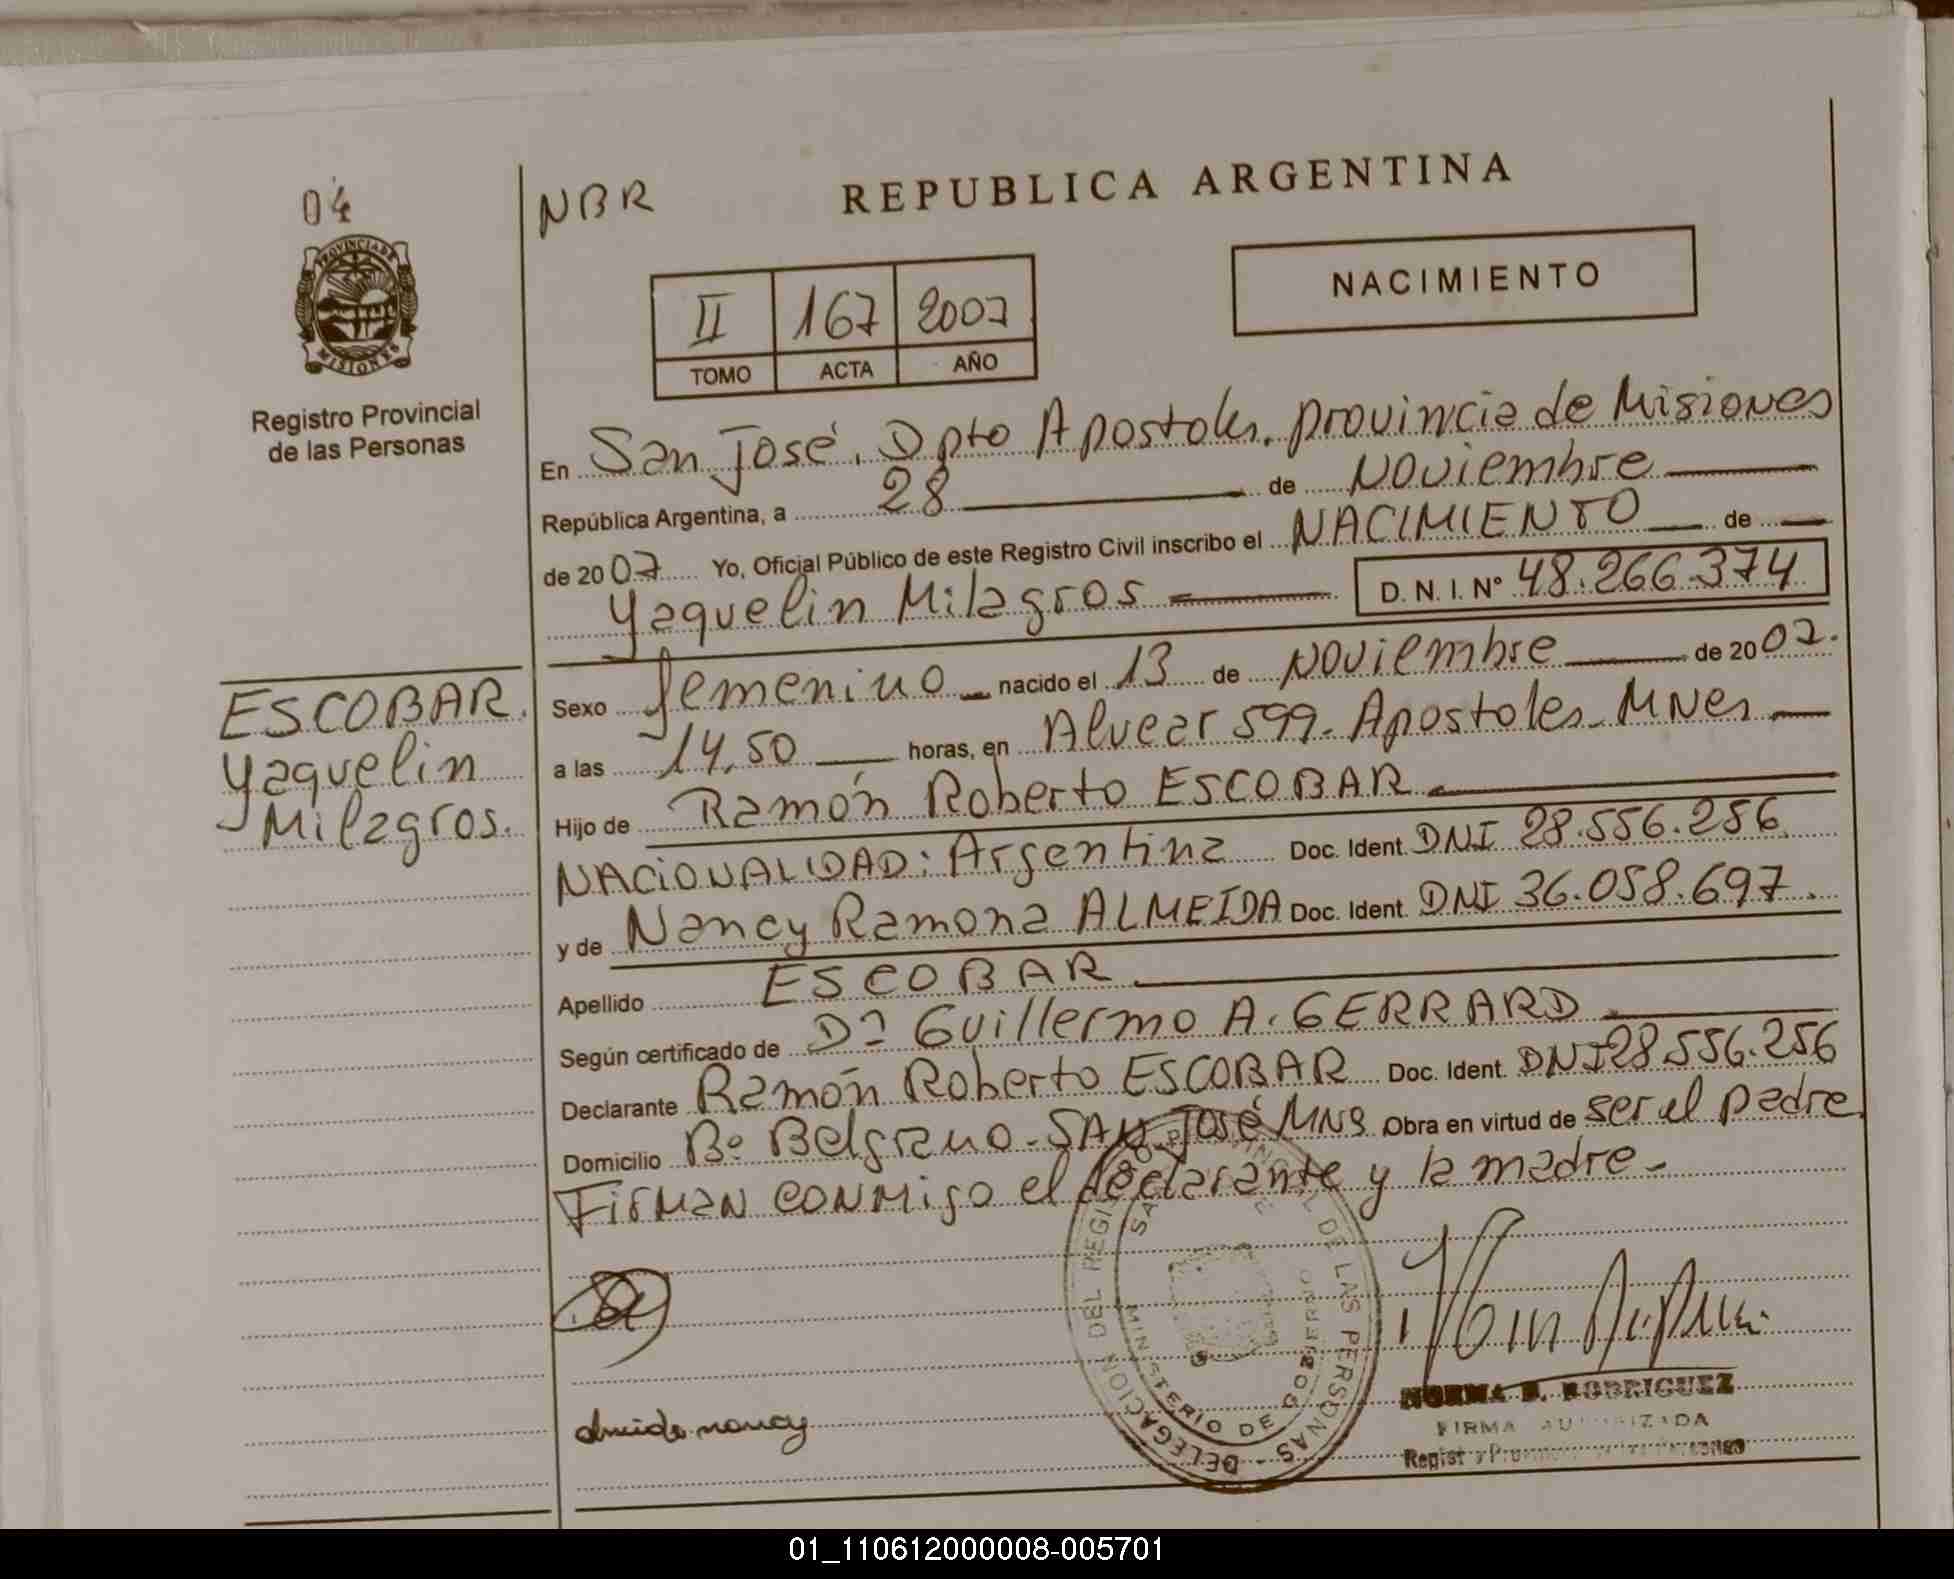 04
PROVINCIA DE
MISIONES
Registro Provincial
de las Personas
NBR
REPUBLICA ARGENTINA
II 167 2007
TOMO ACTA AÑO
NACIMIENTO
En San José, Dpto Apostoles, provincia de Misiones
República Argentina, a 28 de Noviembre
de 2007 Yo, Oficial Público de este Registro Civil inscribo el NACIMIENTO de
Yaquelin Milagros D. N. I. Nº 48.266.374
Sexo femenino nacido el 13 de Noviembre de 2007.
a las 14,50 horas, en Alvear 599. Apostoles. MNes
Hijo de Ramón Roberto ESCOBAR
NACIONALIDAD: Argentina Doc. Ident. DNI 28.556.256
y de Nancy Ramona ALMEIDA Doc. Ident. DNI 36.058.697.
Apellido ESCOBAR
Según certificado de Dr Guillermo A. GERRARD
Declarante Ramón Roberto ESCOBAR Doc. Ident. DNI 28.556.256
Domicilio Bº Belgrano - SAN José MNS Obra en virtud de ser el padre
Firman conmigo el declarante y la madre -
ESCOBAR.
Yaquelin
Milagros.
DELEGACION DEL REGISTRO PROVINCIAL DE LAS PERSONAS -
MINISTERIO DE GOBIERNO
nancy
NORMA B. RODRIGUEZ
FIRMA AUTORIZADA
01_110612000008-005701